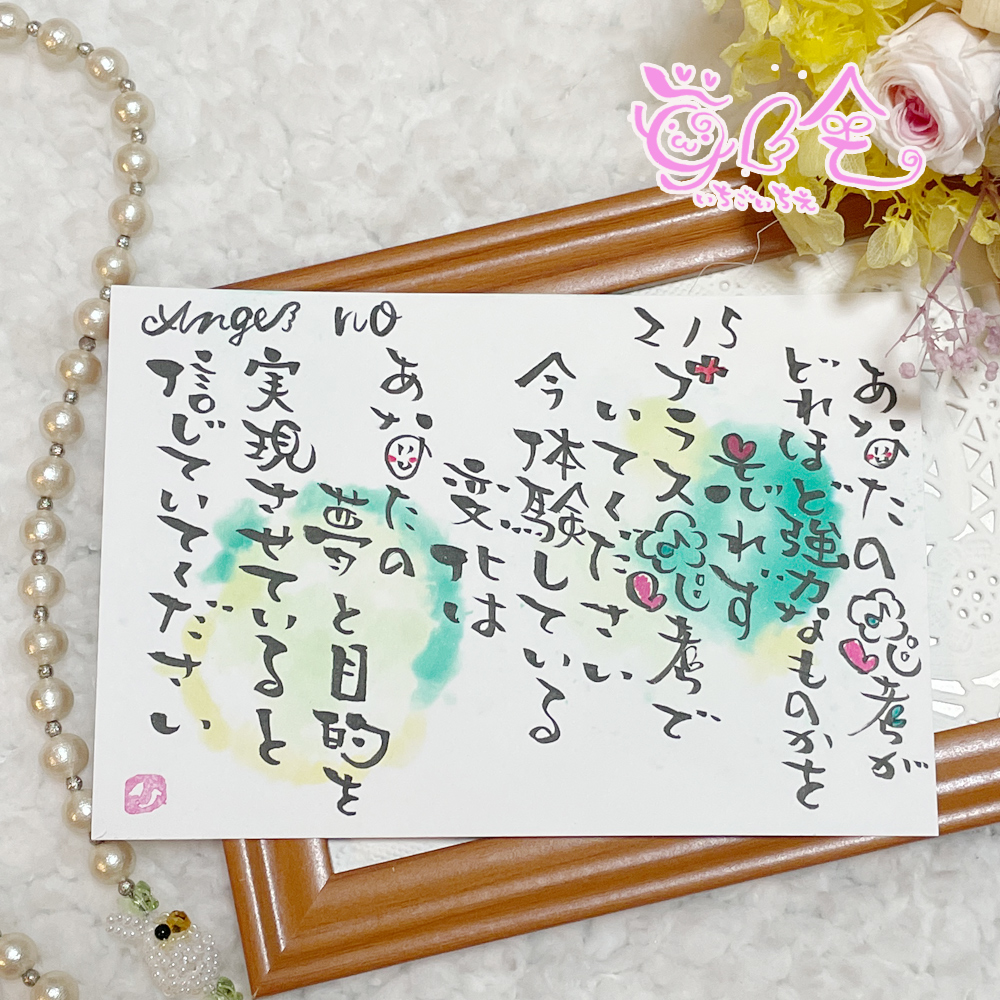 Angel no
215
あなたの思考が
どれほど強力なものかを
忘れず
プラス思考で
いてください
今体験している
変化は
あなたの
夢と目的を
実現させていると
信じていてください
いちごいちえ